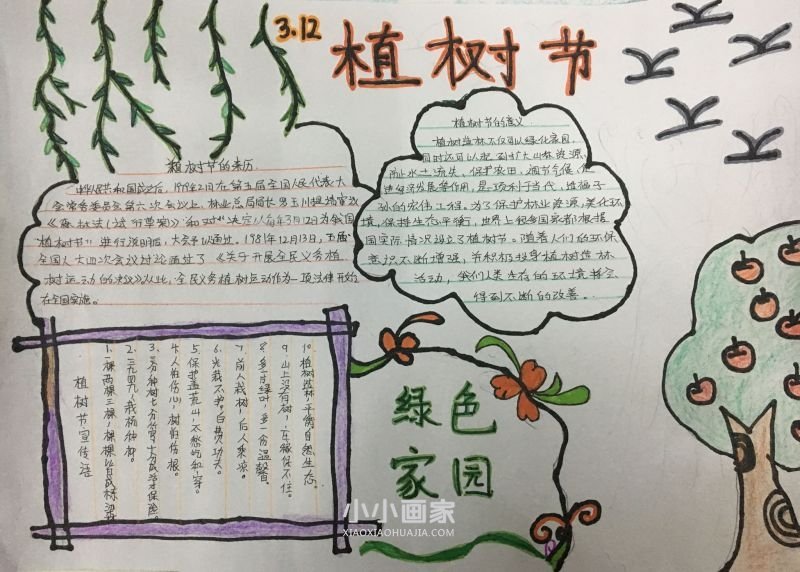 3.12
植树节
植树节的来历
中华人民共和国成立后，1979年2月在第五届全国人民代表大
会常务委员会第六次会议上，林业总局局长罗玉川提请审议
《森林法(试行草案)》和对"决定以每年3月12日为我国
"植树节"进行说明后，大会予以通过。1981年12月13日，五届
全国人大四次会议讨论通过了《关于开展全民义务植
树运动的决议》从此，全民义务植树运动作为一项法律开始
在全国实施。
植树节的意义
植树造林不仅可以绿化家园，
同时还可以起到扩大山林资源、
防止水土流失、保护农田、调节气候、促
进经济发展等作用，是一项利于当代、造福子
孙的宏伟工程。为了保护林业资源，美化环
境，保持生态平衡，世界上很多国家都根据
国实际情况设立了植树节。随着人们的环保
意识不断增强，并积极投身植树造林
活动，我们人类生存的环境将会
得到不断的改善。
植树节宣传语
1.一棵两棵三棵，棵棵皆自成栋梁
2.三元四九，栽杨种柳。
3.多种树
4.人怕伤心，树怕伤根。
5.保护盖荒山，不愁吃和穿。
6.光栽不护，白费功夫。
7.前人栽树，后人乘凉。
8.多一片绿叶，多一份温馨。
9.山上没有树，水缘保不住。
10.植树造林，平衡自然生态。
绿色
家园
小小画家
XIAOXIAOHUAJIA.COM